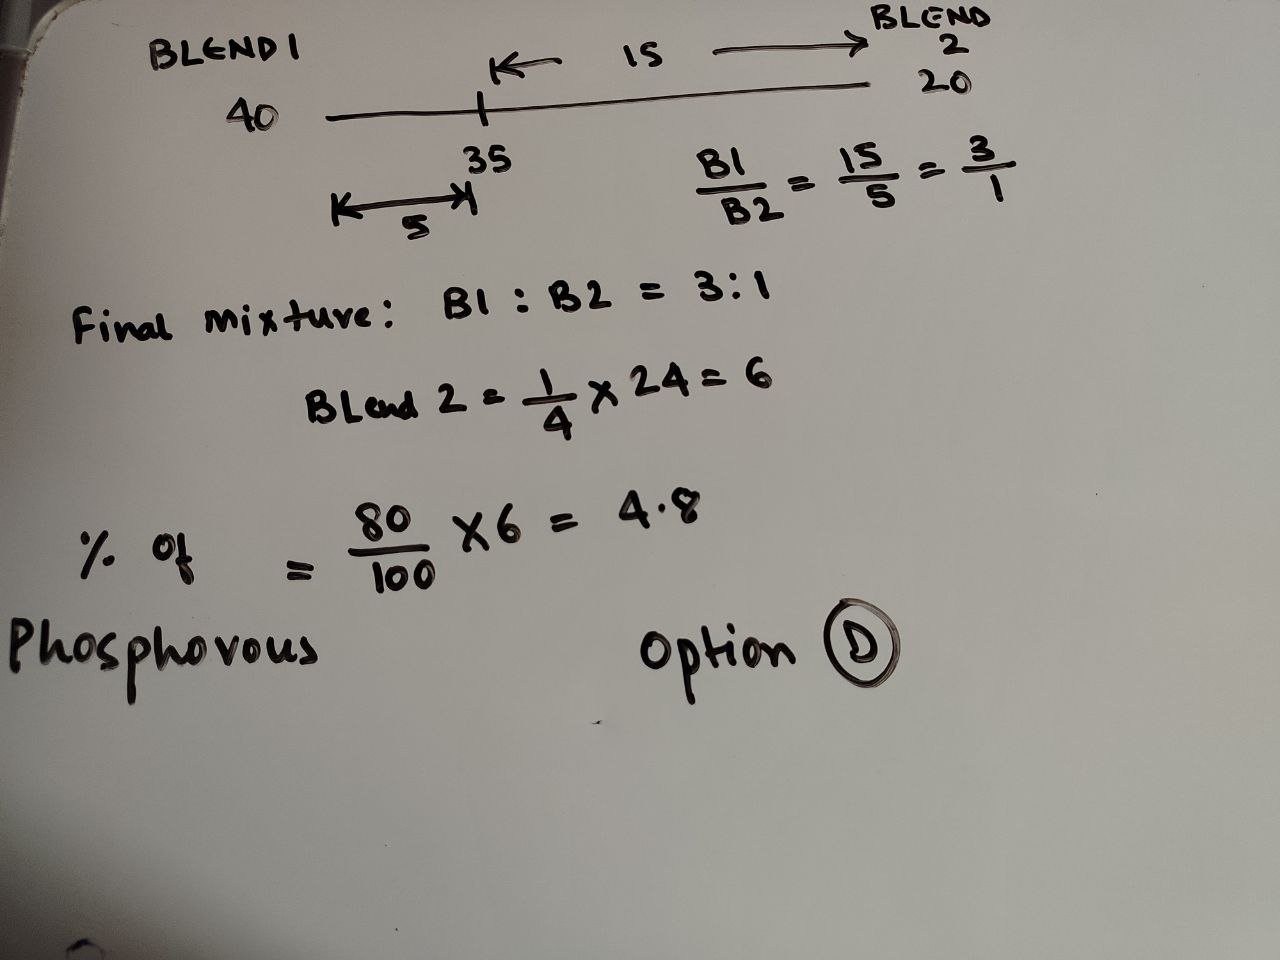 BLEND 1
BLEND
2
15
40
20
35
5
B1/B2 = 15/5 = 3/1
Final mixture: B1 : B2 = 3:1
BLend 2 = 1/4 x 24 = 6
% of = 80/100 x 6 = 4.8
Phosphorous
option D